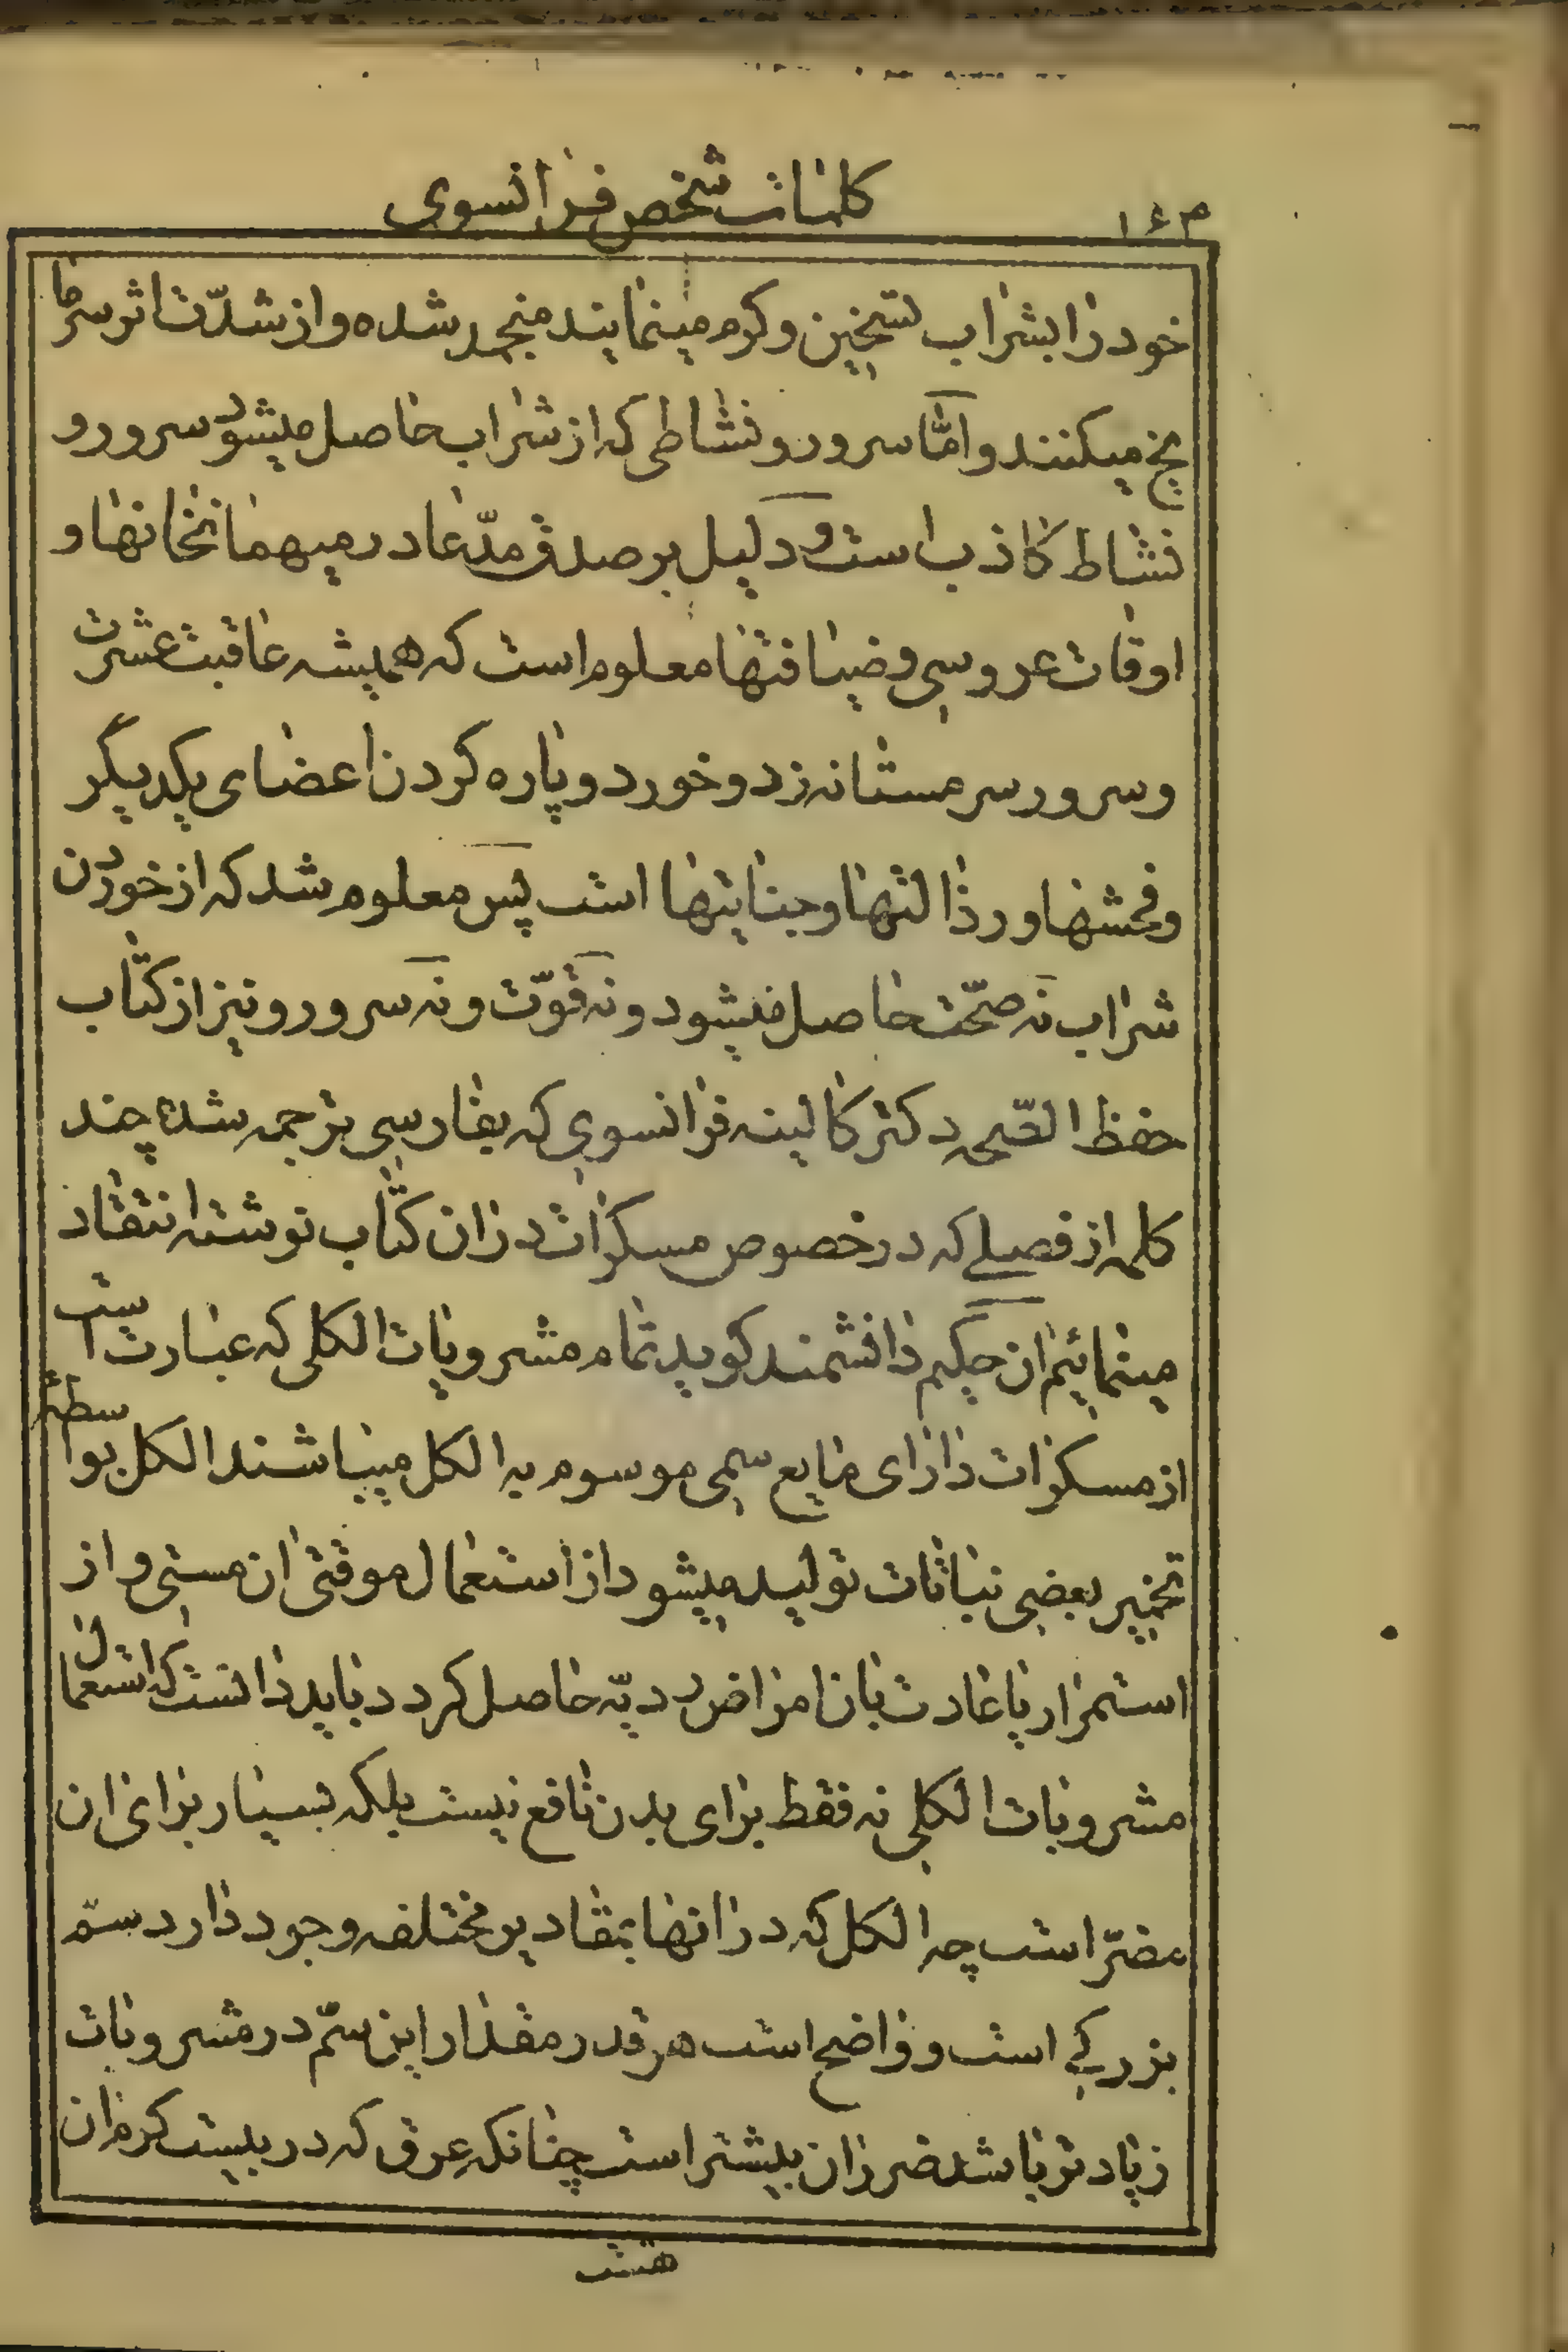 ۱۶۳
کلمات شخص فرانسوی
خود را بشراب تسخین و کرم مینمایند منجمد شده و از شدّت اثر سرما
یخ میکنند و امّا سرور و نشاطی که از شراب حاصل میشود سرور و
نشاط کاذب است و دلیل بر صدق مدّعا در میهمانخانها و
اوقات عروسی و ضیافتها معلوم است که همیشه عاقبت عشرت
و سرور سر مستانه زد و خورد و پاره کردن اعضای یکدیگر
و فحشها و رذالتها و جنایتها است پس معلوم شد که از خوردن
شراب نه صحّت حاصل میشود و نه قوّت و نه سرور و نیز از کتاب
حفظ الصّحه دکتر کالینه فرانسوی که بفارسی ترجمه شده چند
کلمه از فصلی که در خصوص مسکرات در ان کتاب نوشته انتقاد
مینمائیم ان حکیم دانشمند کوید تمام مشروبات الکلی که عبارت است
از مسکرات دارای مایع سمی موسوم به الکل میباشند الکل بواسطهٔ
تخمیر بعضی نباتات تولید میشود از استعمال موقتی ان مستی و از
استمرار یا عادت بان امراض ردیّه حاصل کردد باید دانست که استعمال
مشروبات الکلی نه فقط برای بدن نافع نیست بلکه بسیار برای ان
مضرّ است چه الکل که در انها بمقادیر مختلفه وجود دارد سمّ
بزرکی است و واضح است هر قدر مقدار این سمّ در مشروبات
زیادتر باشد ضرر ان بیشتر است چنانکه عرق که در بیست کرم ان
هشت